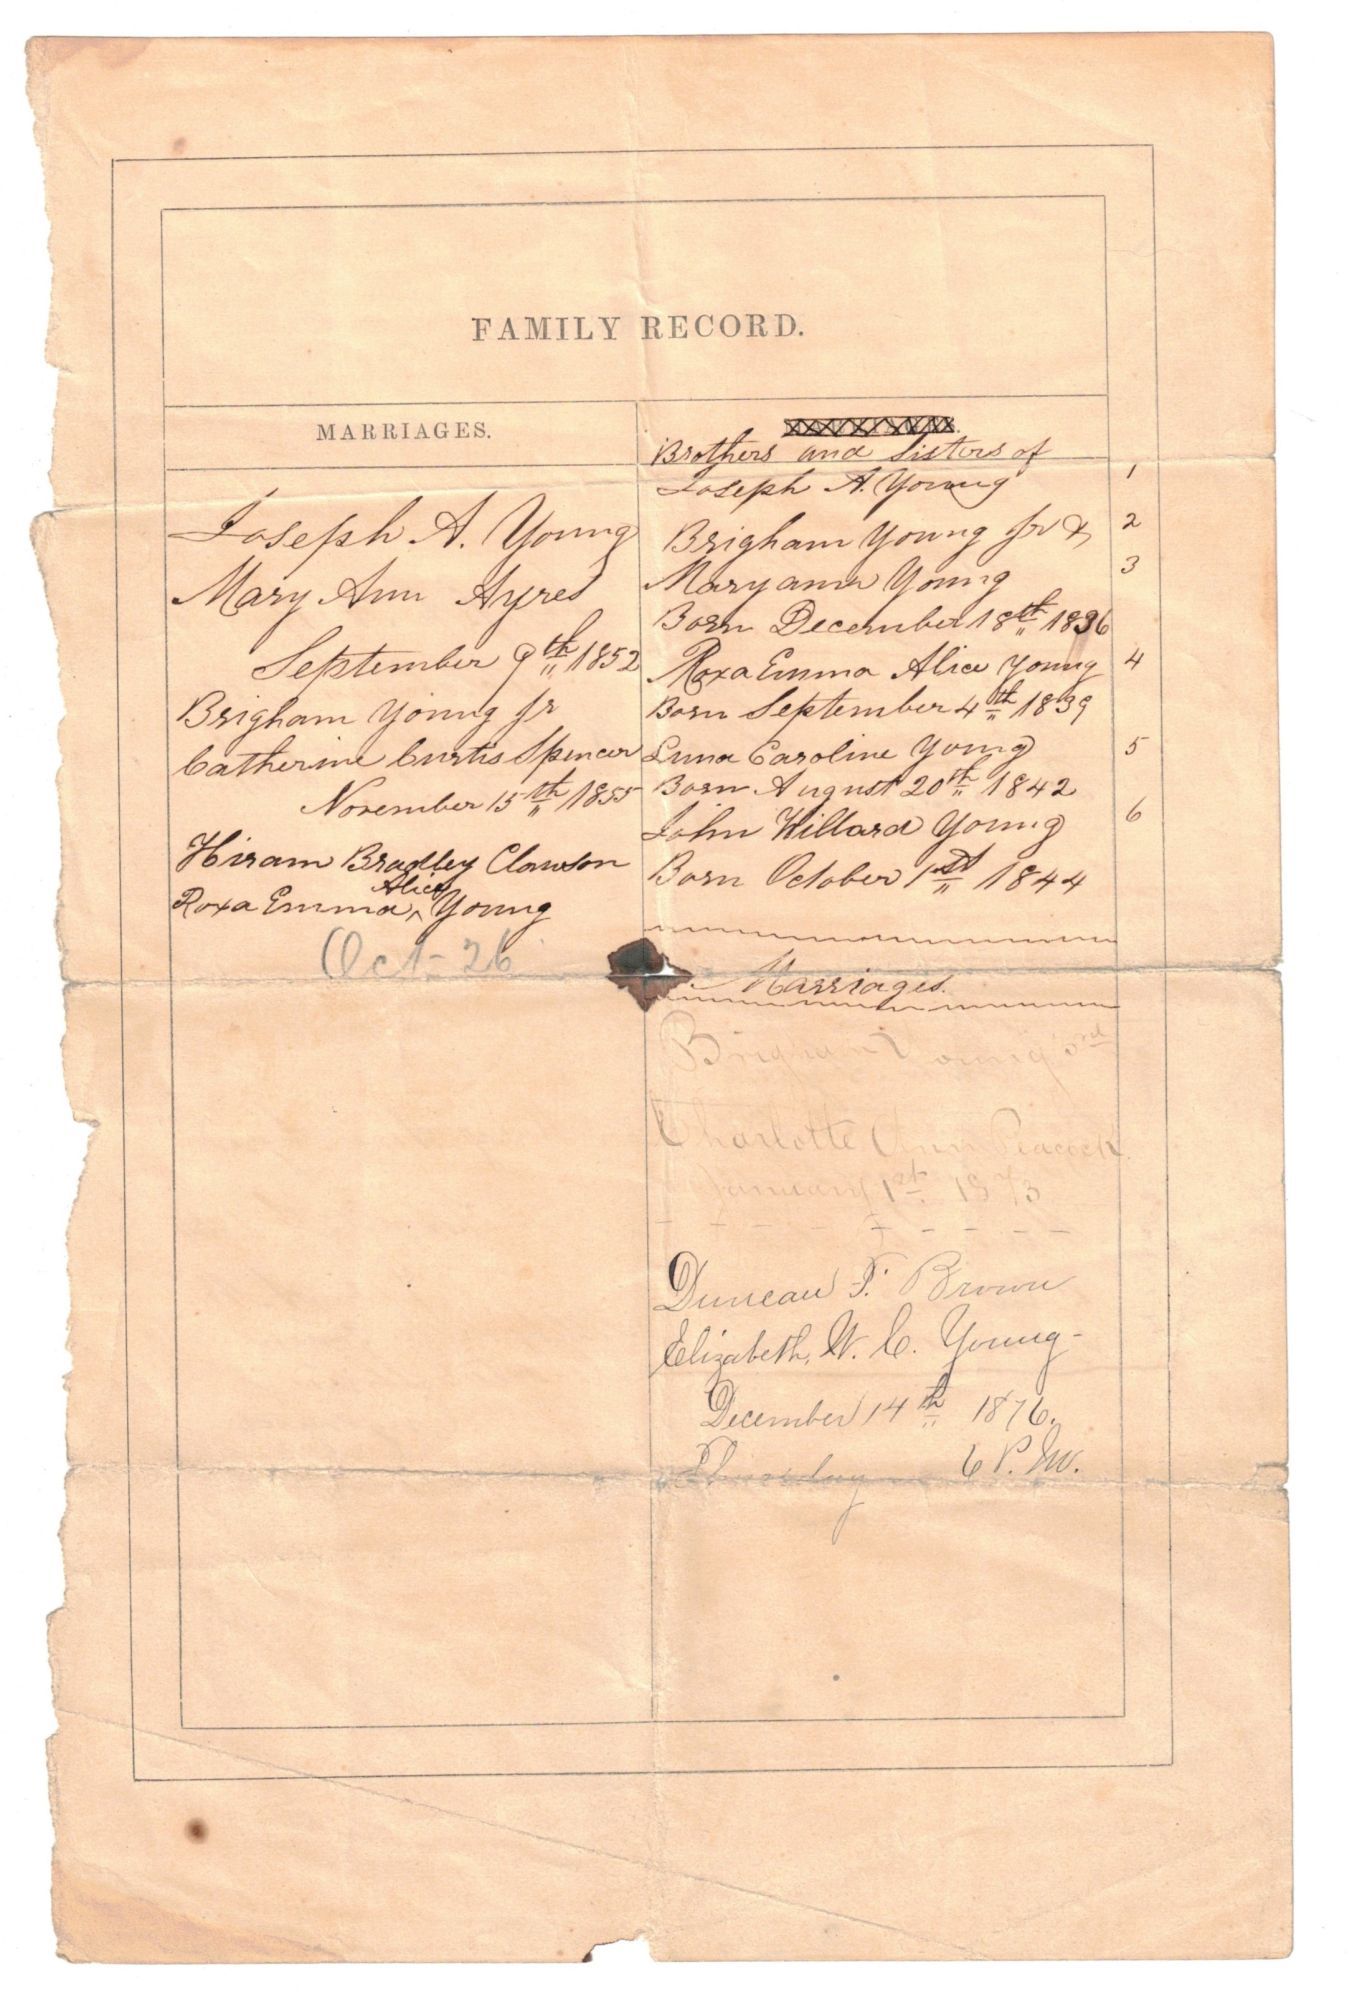 FAMILY RECORD.
MARRIAGES.
Joseph A. Young
Mary Ann Ayres
September 9th 1852
Brigham Young Jr
Catherine Curtis Spencer
November 15th 1855
Hiram Bradley Clawson
Alice
Roxa Emma ^ Young
Oct - 26
Brothers and Sisters of
Joseph A. Young 1
Brigham Young Jr & 2
Maryann Young 3
Born December 18th 1836
Roxa Emma Alice Young 4
Born September 4th 1839
Luna Caroline Young 5
Born August 20th 1842
John Willard Young 6
Born October 1st 1844
Marriages.
Brigham Young 3rd
Charlotte Ann Peacock.
January 1st 1873
Duncan T. Brown
Elizabeth, W. C. Young-
December 14th 1876.
Thursday 6 P.M.